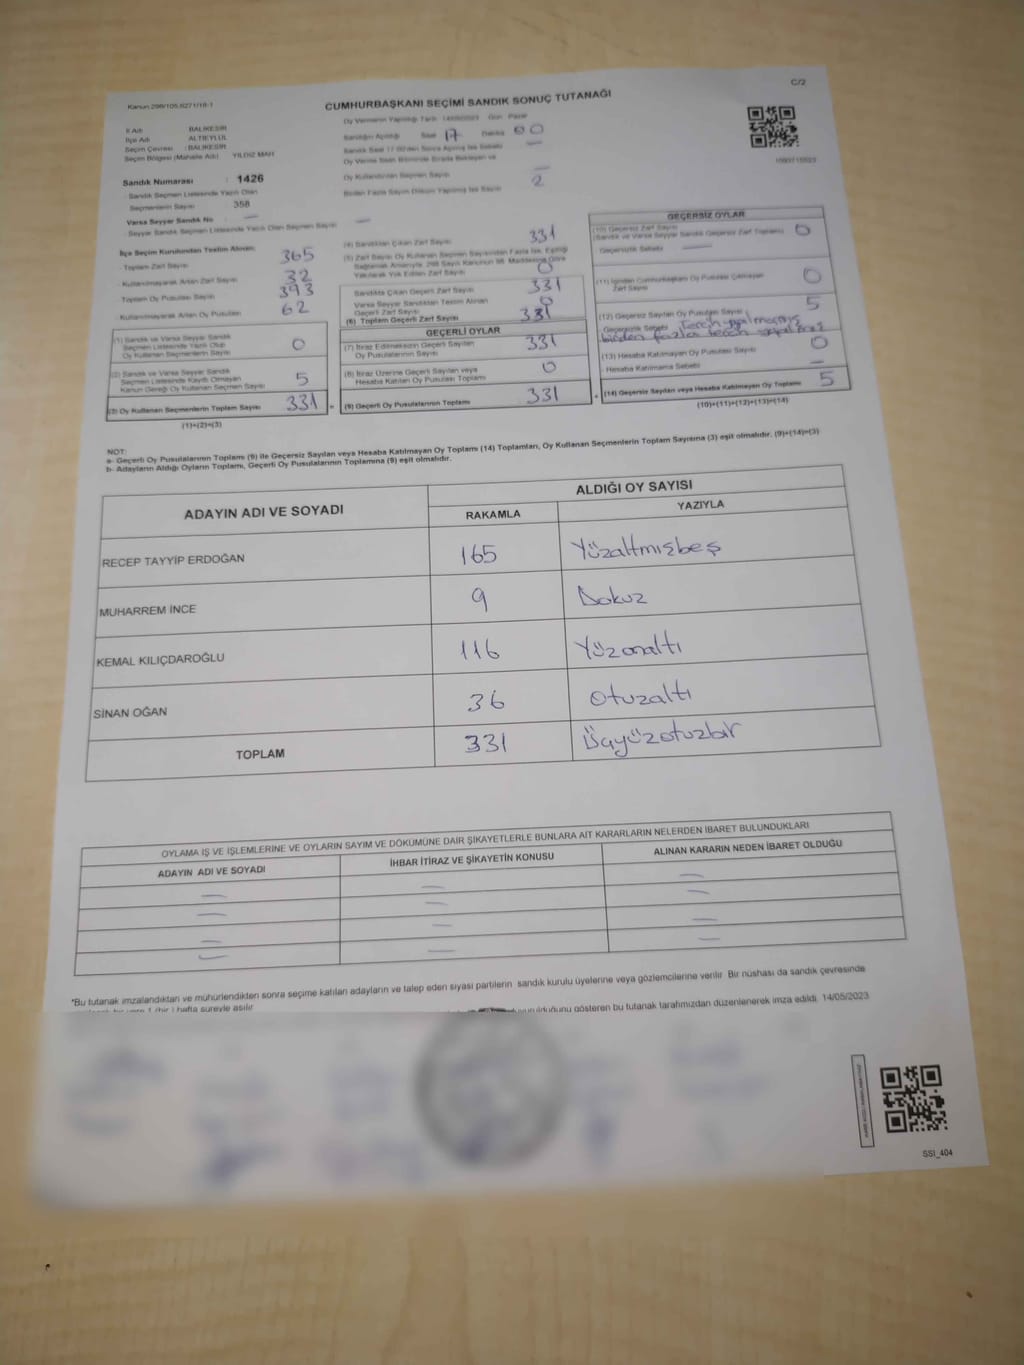 Kanun 298/105,6271/18-1
C/2
CUMHURBAŞKANI SEÇİMİ SANDIK SONUÇ TUTANAĞI
İl Adı BALIKESİR
İlçe Adı ALTIEYLÜL
Seçim Çevresi : BALIKESİR
Seçim Bölgesi (Mahalle Adı) YILDIZ MAH
Sandık Numarası : 1426
Sandık Seçmen Listesinde Yazılı Olan
Seçmenlerin Sayısı : 358
Varsa Seyyar Sandık No : —
Seyyar Sandık Seçmen Listesinde Yazılı Olan Seçmen Sayısı : —
Oy Vermenin Yapıldığı Tarih 14/05/2023 Gün Pazar
Sandığın Açıldığı Saat 17 Dakika 00
Sandık Saat 17:00'den Sonra Açılmış İse Sebebi —
Oy Verme Saati Bitiminde Sırada Bekleyen ve
Oy Kullandırılan Seçmen Sayısı —
Birden Fazla Sayım Döküm Yapılmış İse Sayısı 2
İlçe Seçim Kurulundan Teslim Alınan;
Toplam Zarf Sayısı 365
Kullanılmayarak Artan Zarf Sayısı 32
Toplam Oy Pusulası Sayısı 393
Kullanılmayarak Artan Oy Pusulası 62
(1) Sandık ve Varsa Seyyar Sandık
Seçmen Listesinde Yazılı Olup
Oy Kullanan Seçmenlerin Sayısı 0
(2) Sandık ve Varsa Seyyar Sandık
Seçmen Listesinde Kayıtlı Olmayan
Kanun Gereği Oy Kullanan Seçmen Sayısı 5
(3) Oy Kullanan Seçmenlerin Toplam Sayısı 331 =
(1)+(2)=(3)
(4) Sandıktan Çıkan Zarf Sayısı 331
(5) Zarf Sayısı Oy Kullanan Seçmen Sayısından Fazla İse, Eşitliği
Sağlamak Amacıyla, 298 Sayılı Kanunun 98. Maddesine Göre
Yakılarak Yok Edilen Zarf Sayısı 0
Sandıkta Çıkan Geçerli Zarf Sayısı 331
Varsa Seyyar Sandıktan Teslim Alınan
Geçerli Zarf Sayısı 0
(6) Toplam Geçerli Zarf Sayısı 331
GEÇERLİ OYLAR
(7) İtiraz Edilmeksizin Geçerli Sayılan
Oy Pusulalarının Sayısı 331
(8) İtiraz Üzerine Geçerli Sayılan veya
Hesaba Katılan Oy Pusulası Toplamı 0
(9) Geçerli Oy Pusulalarının Toplamı 331 +
GEÇERSİZ OYLAR
(10) Geçersiz Zarf Sayısı
(Sandık ve Varsa Seyyar Sandık Geçersiz Zarf Toplamı) 0
Geçersizlik Sebebi —
(11) İçinden Cumhurbaşkanı Oy Pusulası Çıkmayan
Zarf Sayısı 0
(12) Geçersiz Sayılan Oy Pusulası Sayısı 5
Geçersizlik Sebebi Tercih yapılmamış
birden fazla tercih yapılmış
(13) Hesaba Katılmayan Oy Pusulası Sayısı 0
Hesaba Katılmama Sebebi —
(14) Geçersiz Sayılan veya Hesaba Katılmayan Oy Toplamı 5
(10)+(11)+(12)+(13)=(14)
NOT:
a- Geçerli Oy Pusulalarının Toplamı (9) ile Geçersiz Sayılan veya Hesaba Katılmayan Oy Toplamı (14) Toplamları, Oy Kullanan Seçmenlerin Toplam Sayısına (3) eşit olmalıdır. (9)+(14)=(3)
b- Adayların Aldığı Oyların Toplamı, Geçerli Oy Pusulalarının Toplamına (9) eşit olmalıdır.
ADAYIN ADI VE SOYADI
ALDIĞI OY SAYISI
RAKAMLA YAZIYLA
RECEP TAYYİP ERDOĞAN 165 Yüzaltmışbeş
MUHARREM İNCE 9 Dokuz
KEMAL KILIÇDAROĞLU 116 Yüzonaltı
SİNAN OĞAN 36 Otuzaltı
TOPLAM 331 Üçyüzotuzbir
OYLAMA İŞ VE İŞLEMLERİNE VE OYLARIN SAYIM VE DÖKÜMÜNE DAİR ŞİKAYETLERLE BUNLARA AİT KARARLARIN NELERDEN İBARET BULUNDUKLARI
ADAYIN ADI VE SOYADI İHBAR İTİRAZ VE ŞİKAYETİN KONUSU ALINAN KARARIN NEDEN İBARET OLDUĞU
— — —
— — —
— — —
— — —
*Bu tutanak imzalandıktan ve mühürlendikten sonra seçime katılan adayların ve talep eden siyasi partilerin sandık kurulu üyelerine veya gözlemcilerine verilir. Bir nüshası da sandık çevresinde
1 (bir ) hafta süreyle asılır.
olduğunu gösteren bu tutanak tarafımızdan düzenlenerek imza edildi. 14/05/2023
SSI_404